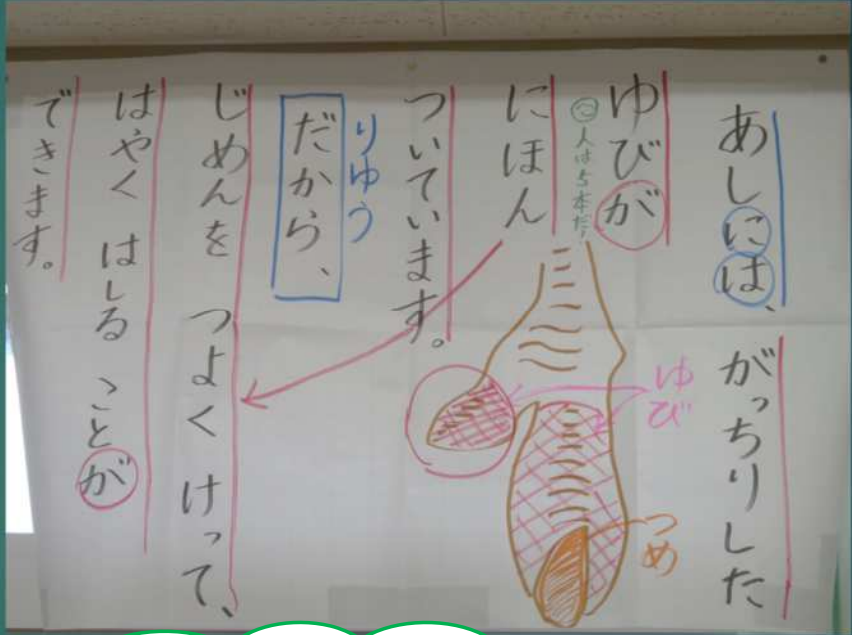 あしには、がっちりした
ゆびが
人は5本だ!
にほん
ついています。
りゆう
だから、
じめんを つよく けって、
はやく はしる ことが
できます。
ゆび
つめ